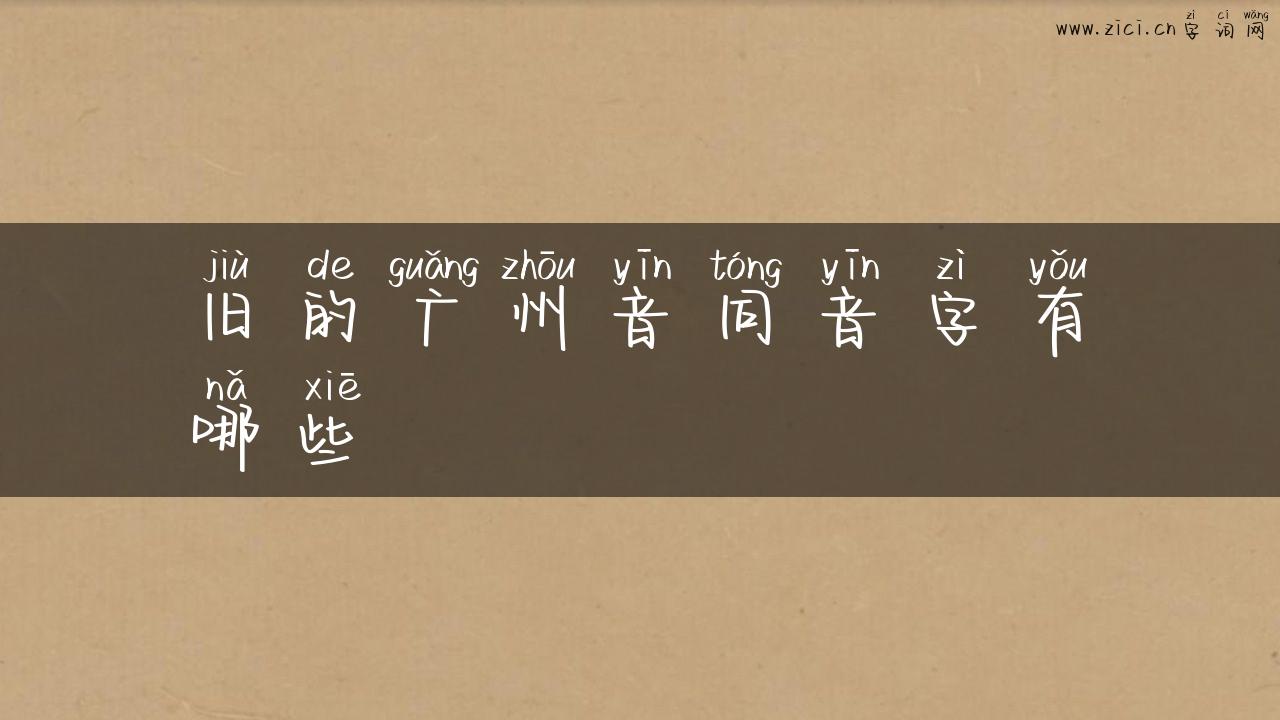 zì cí wǎng
www.zici.cn 字词网
jiù de guǎng zhōu yīn tóng yīn zì yǒu
旧的广州音同音字有
nǎ xiē
哪些